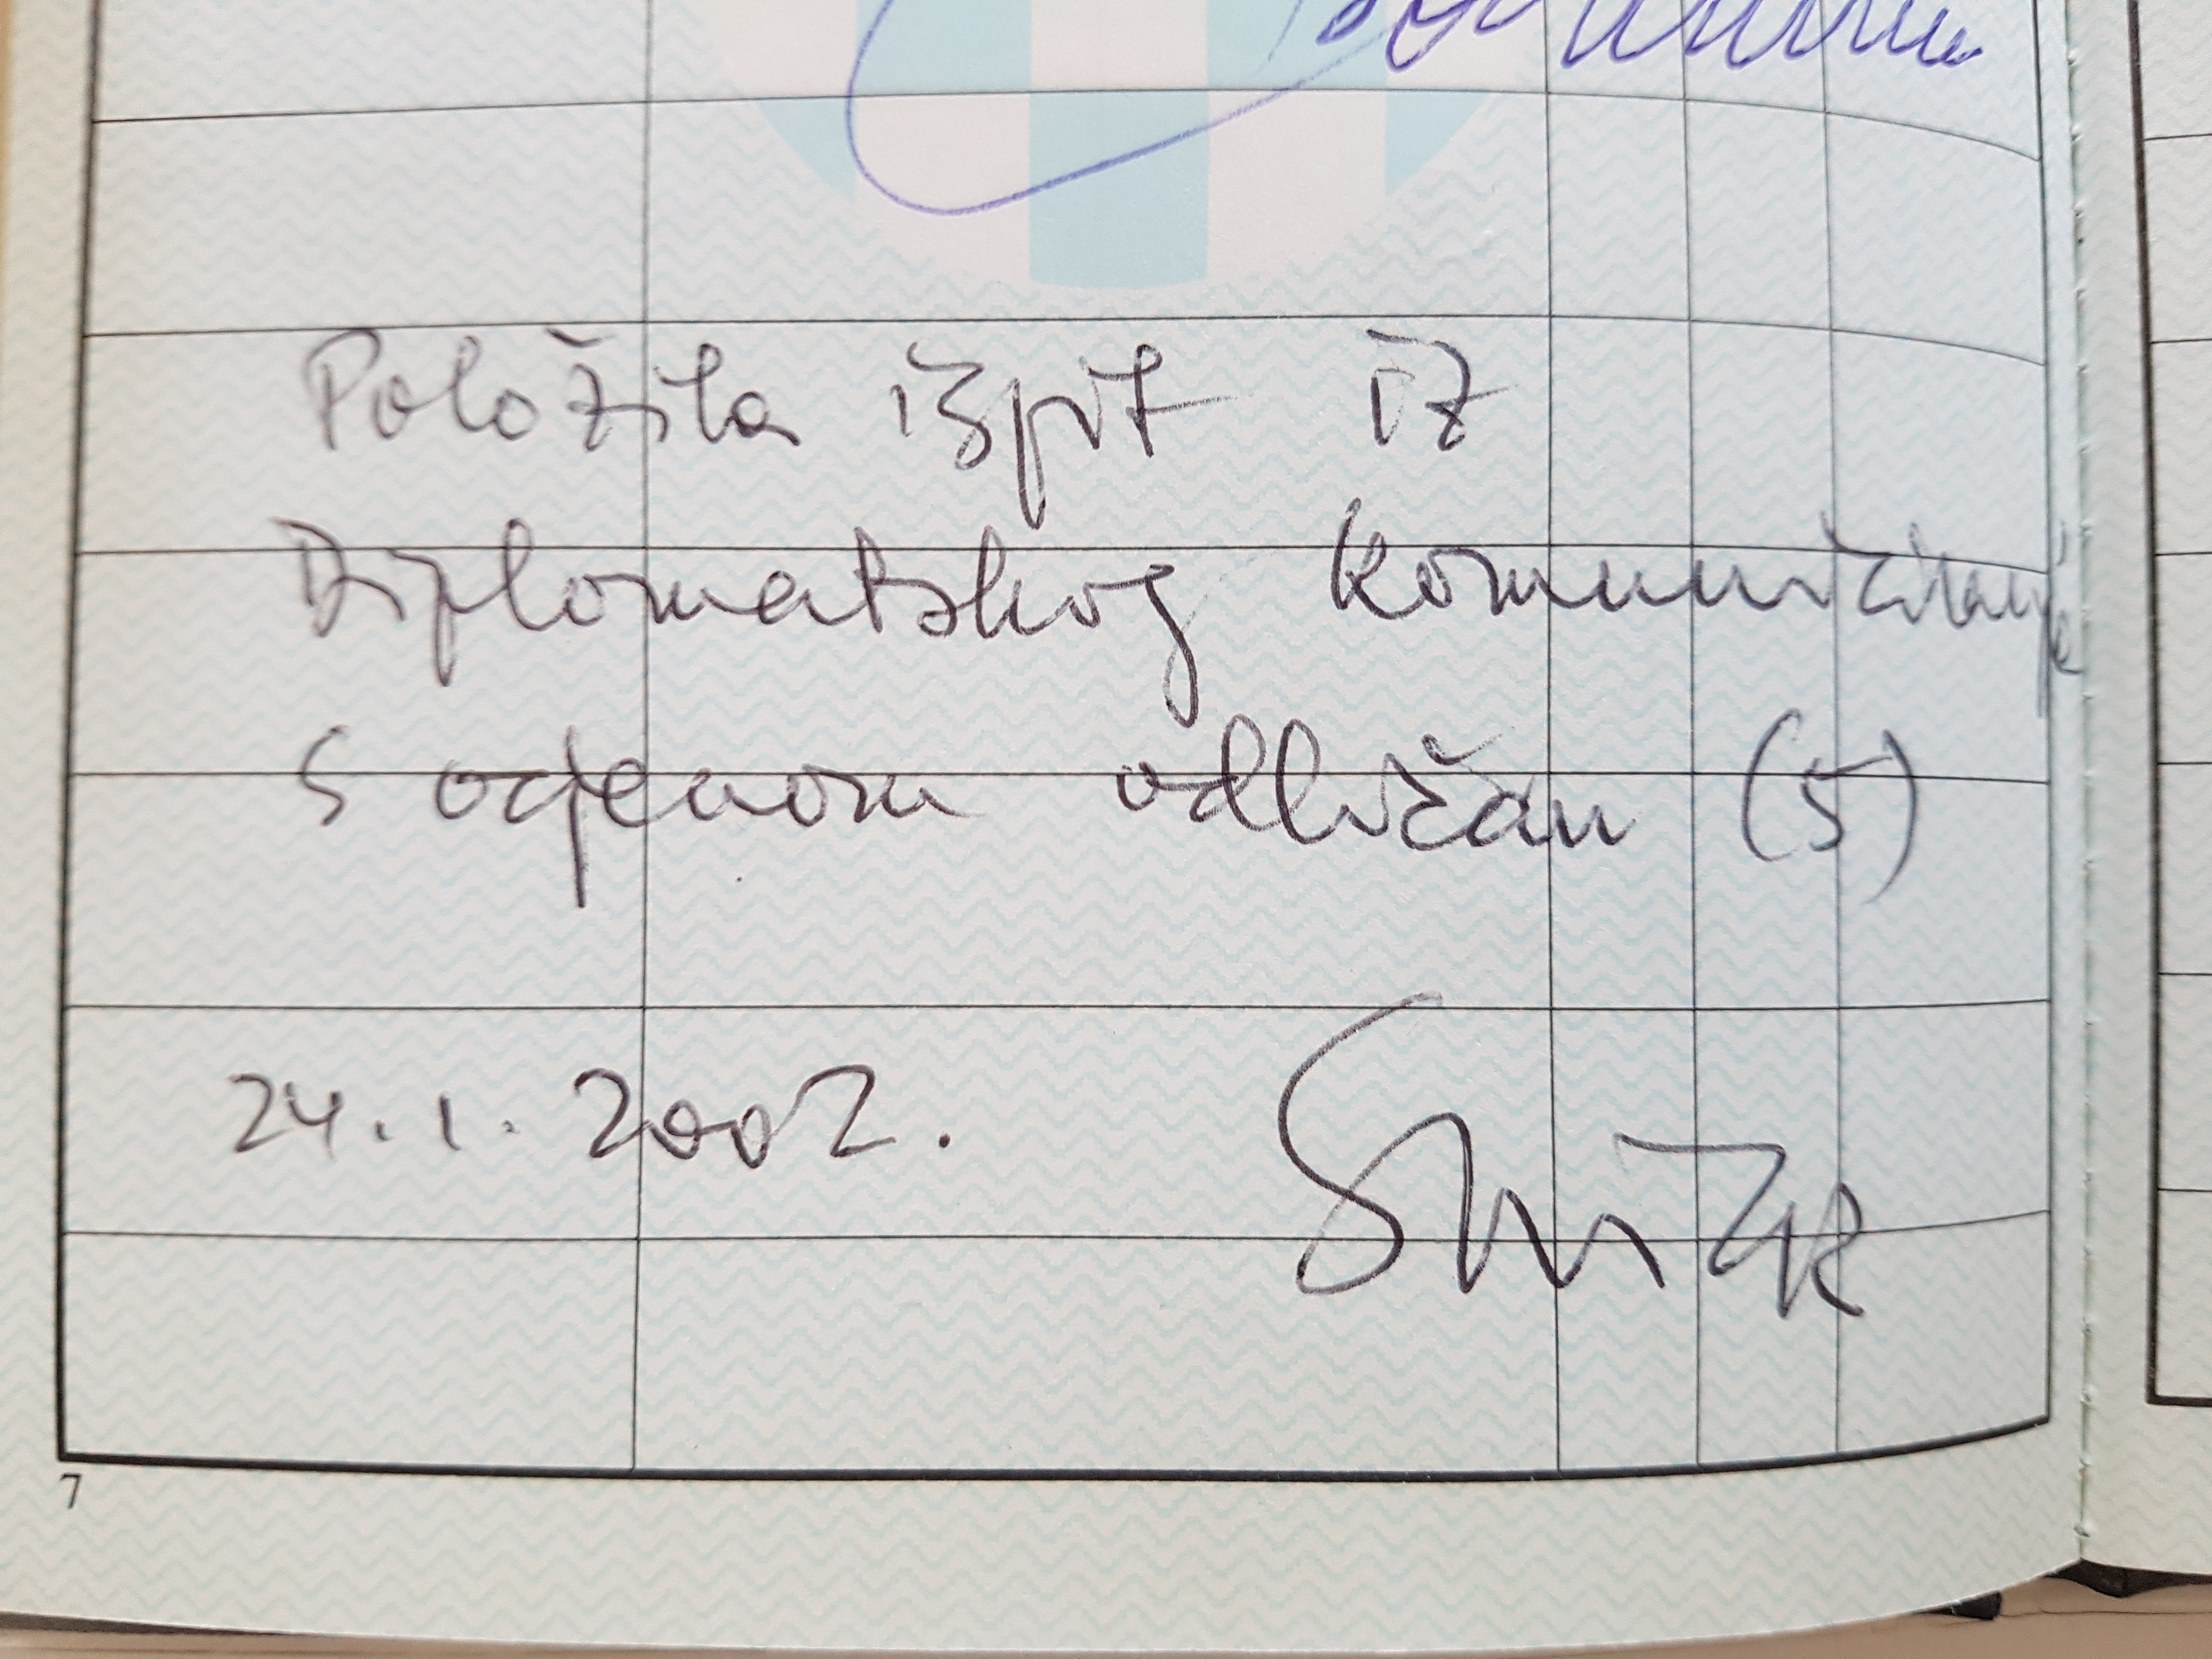 Položila ispit iz
Diplomatskog komuniciranja
s ocjenom odličan (5)
24.1.2002.
7